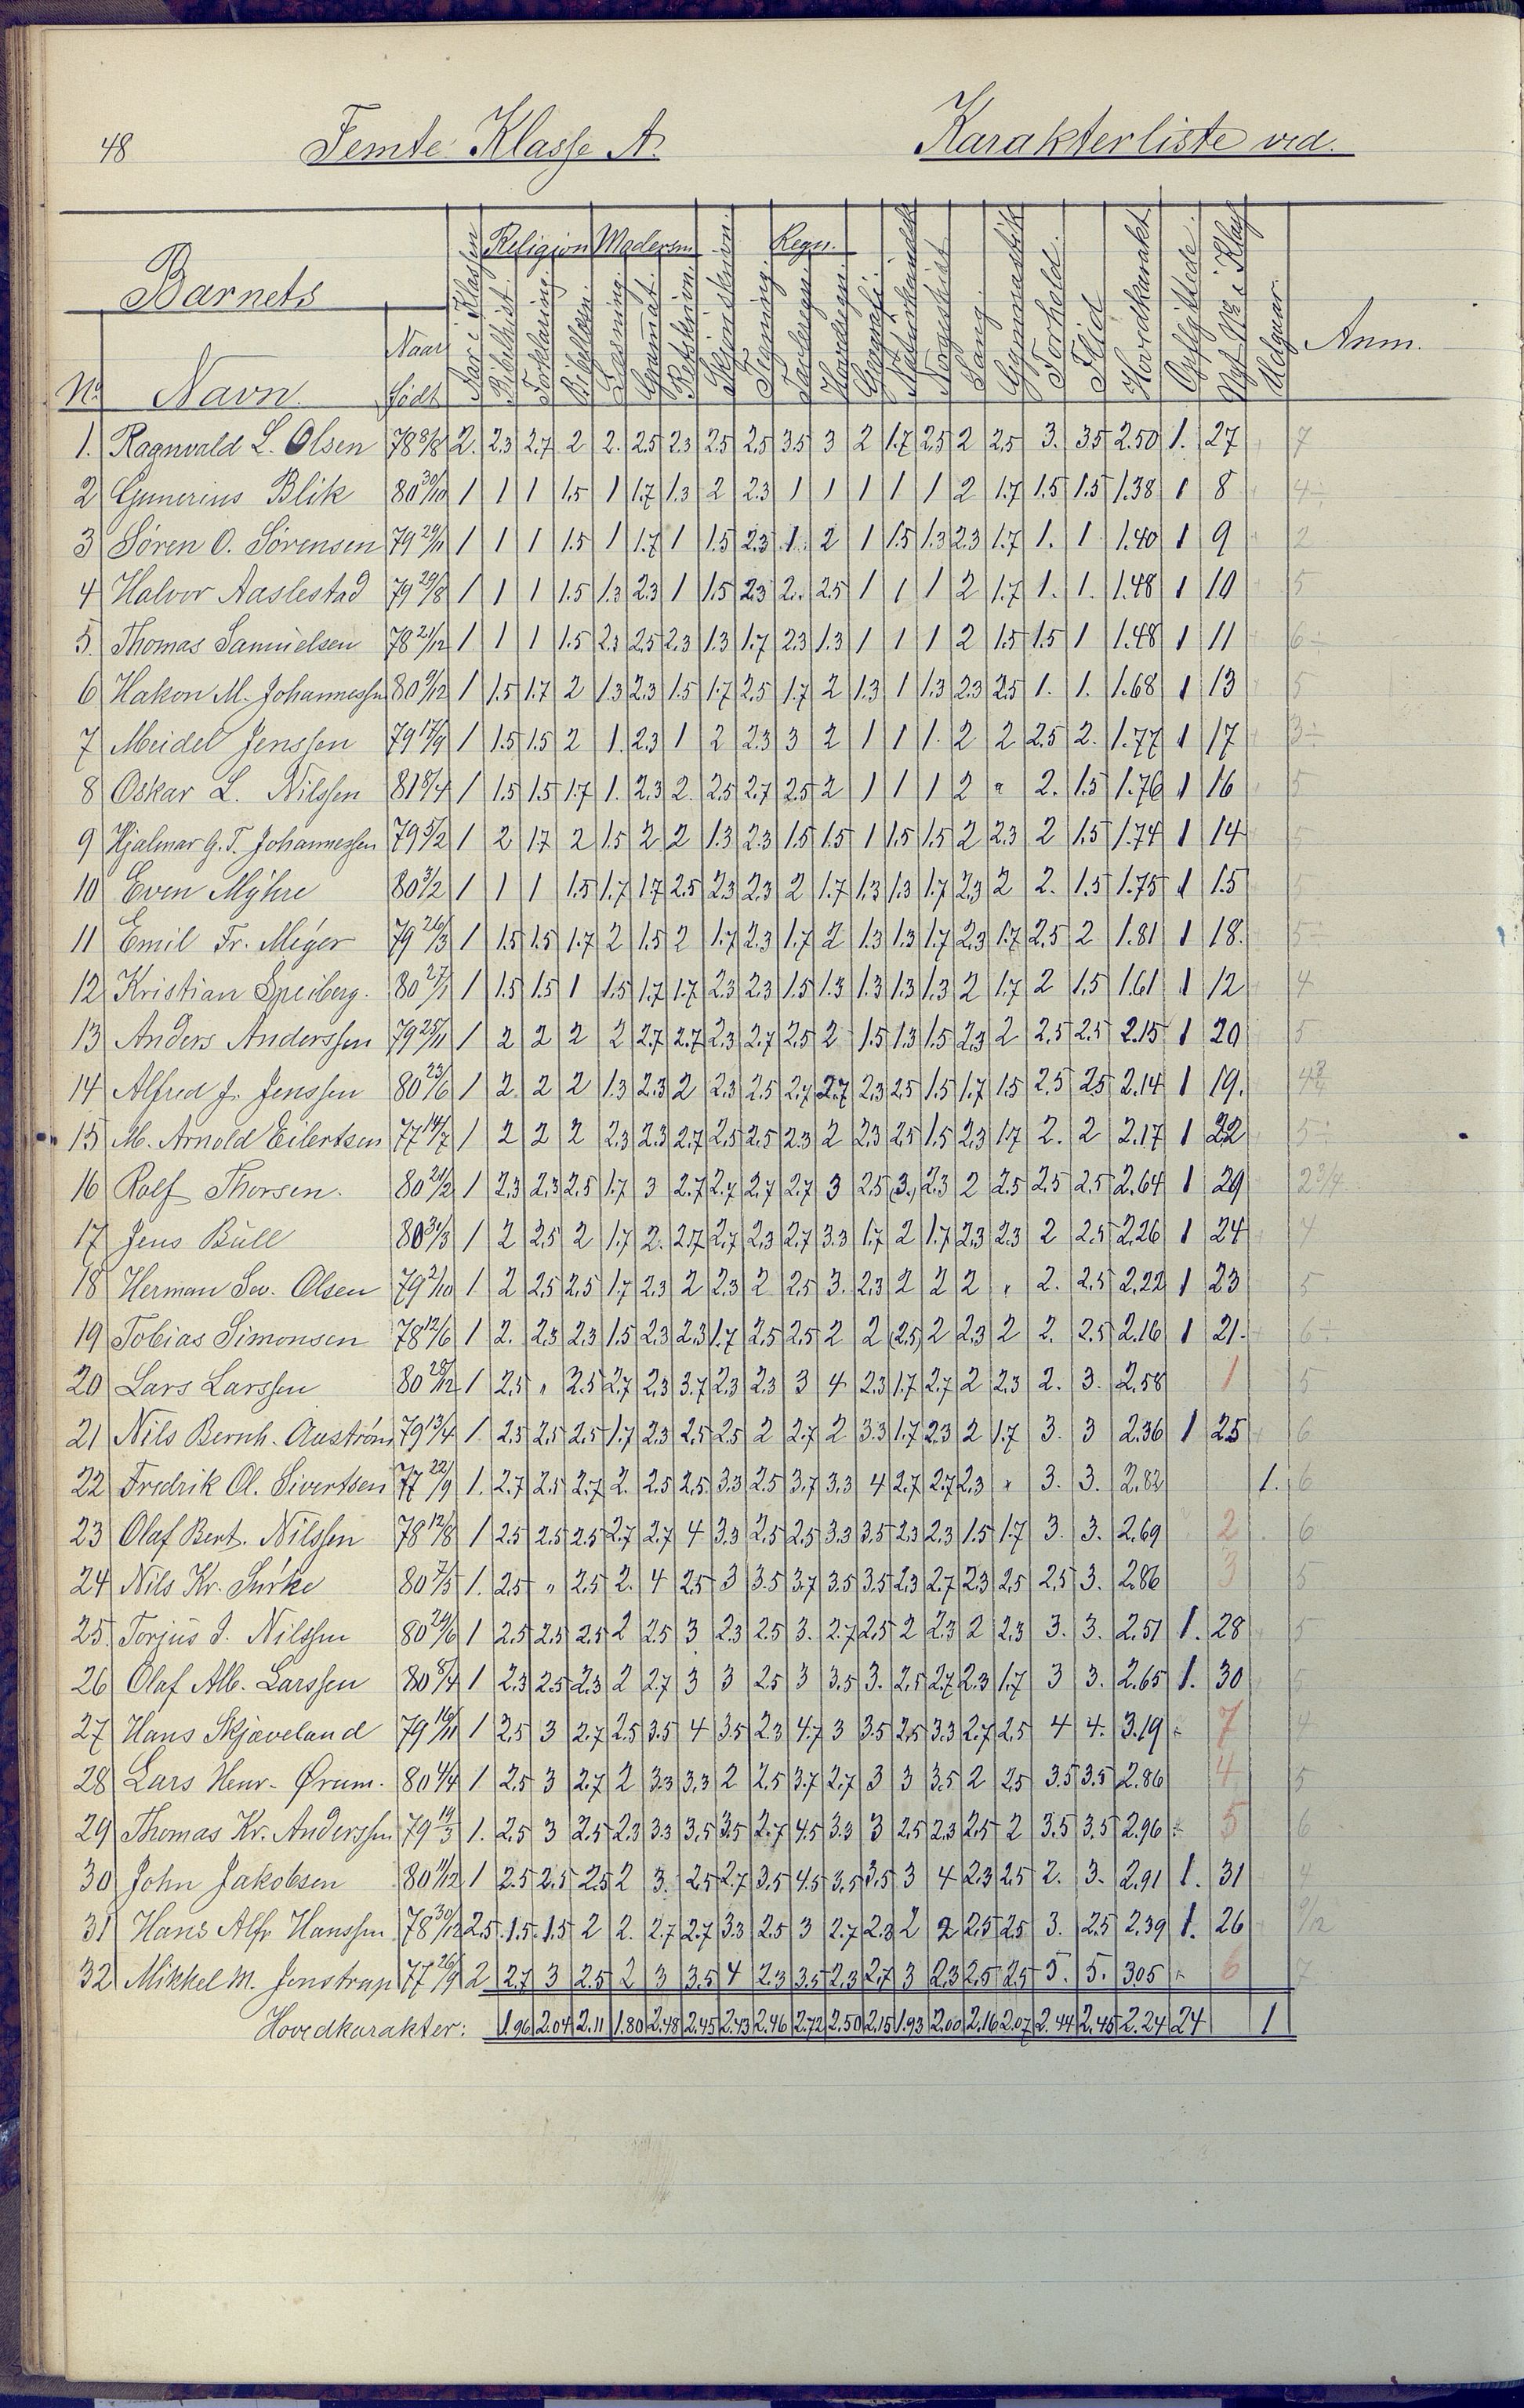 48
Femte Klasse A.
Karakterliste ved.
Barnets
No. Navn. Naar født Aar i Klassen Religion Bibelhist. Forklaring Bibellæsn. Modersm. Læsning. Gramat. Retskrivn. Skjønskrivn. Tegning. Regn. Tavleregn. Hovedregn. Geografi. Naturkundsk. Norgeshist. Sang. Gymnastik Forhold. Flid Hovedkarakt. Opflyttede. Nyt No. i Klas. Udgaar. Anm.
1. Ragnvald L. Olsen 78 8/8 2. 2.3 2.7 2 2. 2.5 2.3 2.5 2.5 3.5 3 2 1.7 2.5 2 2.5 3. 3.5 2.50 1. 27 7
2 Gunerius Blik 80 30/10 1 1 1 1.5 1 1.7 1.3 2 2.3 1 1 1 1 1 2 1.7 1.5 1.5 1.38 1 8 4÷
3 Søren O. Sørensen 79 29/11 1 1 1 1.5 1 1.7 1 1.5 2.3 1. 2 1 1.5 1.3 2.3 1.7 1. 1 1.40 1 9 2
4 Halvor Aaslestad 79 29/8 1 1 1 1.5 1.3 2.3 1 1.5 2.3 2. 2.5 1 1 1 2 1.7 1. 1. 1.48 1 10 5
5. Thomas Samuelsen 78 21/12 1 1 1 1.5 2.3 2.5 2.3 1.3 1.7 2.3 1.3 1 1 1 2 1.5 1.5 1 1.48 1 11 6÷
6 Hakon M. Johannessn 80 9/12 1 1.5 1.7 2 1.3 2.3 1.5 1.7 2.5 1.7 2 1.3 1 1.3 2.3 2.5 1. 1. 1.68 1 13 5
7 Meidel Jenssen 79 17/9 1 1.5 1.5 2 1. 2.3 1 2 2.3 3 2 1 1 1. 2 2 2.5 2. 1.77 1 17 3÷
8 Oskar L. Nilssen 81 8/4 1 1.5 1.5 1.7 1. 2.3 2. 2.5 2.7 2.5 2 1 1 1 2 " 2. 1.5 1.76 1 16 5
9 Hjalmar G. T. Johannessen 79 5/2 1 2 1.7 2 1.5 2 2 1.3 2.3 1.5 1.5 1 1.5 1.5 2 2.3 2 1.5 1.74 1 14 5
10 Even Myhre 80 3/2 1 1 1 1.5 1.7 1.7 2.5 2.3 2.3 2 1.7 1.3 1.3 1.7 2.3 2 2. 1.5 1.75 1 15 5
11 Emil Fr. Meyer 79 26/3 1 1.5 1.5 1.7 2 1.5 2 1.7 2.3 1.7 2 1.3 1.3 1.7 2.3 1.7 2.5 2 1.81 1 18. 5÷
12 Kristian Speiberg. 80 27/1 1 1.5 1.5 1 1.5 1.7 1.7 2.3 2.3 1.5 1.3 1.3 1.3 1.3 2 1.7 2 1.5 1.61 1 12 4
13 Anders Anderssen 79 25/11 1 2 2 2 2 2.7 2.7 2.3 2.7 2.5 2 1.5 1.3 1.5 2.3 2 2.5 2.5 2.15 1 20 5
14 Alfred J. Jenssen 80 23/6 1 2. 2 2 1.3 2.3 2 2.3 2.5 2.7 2.7 2.3 2.5 1.5 1.7 1.5 2.5 2.5 2.14 1 19.
15 M. Arnold Eilertsen 77 14/7 1 2 2 2 2.3 2.3 2.7 2.5 2.5 2.3 2 2.3 2.5 1.5 2.3 1.7 2. 2 2.17 1 22 5÷
16 Rolf Thorsen. 80 21/2 1 2.3 2.3 2.5 1.7 3 2.7 2.7 2.7 2.7 3 2.5 (3.) 2.3 2 2.5 2.5 2.5 2.64 1 29 2 3/4
17 Jens Büll 80 31/3 1 2 2.5 2 1.7 2. 2.7 2.7 2.3 2.7 3.3 1.7 2 1.7 2.3 2.3 2 2.5 2.26 1 24 4
18 Herman Sev. Olsen 79 2/10 1. 2 2.5 2.5 1.7 2.3 2 2.3 2 2.5 3. 2.3 2 2 2 " 2. 2.5 2.22 1 23 5
19 Tobias Simonsen 78 12/6 1 2. 2.3 2.3 1.5 2.3 2.3 1.7 2.5 2.5 2 2 (2.5) 2 2.3 2 2. 2.5 2.16 1 21. 6÷
20 Lars Larssen 80 28/12 1 2.5 " 2.5 2.7 2.3 3.7 2.3 2.3 3 4 2.3 1.7 2.7 2 2.3 2. 3. 2.58 1 5
21 Nils Bernh. Auström 79 13/4 1. 2.5 2.5 2.5 1.7 2.3 2.5 2.5 2 2.7 2 3.3 1.7 2.3 2 1.7 3. 3 2.36 1 25 6
22 Fredrik Ol. Sivertsen 77 22/9 1. 2.7 2.5 2.7 2. 2.5 2.5 3.3 2.5 3.7 3.3 4 2.7 2.7 2.3 " 3. 3. 2.82 1. 6
23 Olaf Bert. Nilssen 78 12/8 1 2.5 2.5 2.5 2.7 2.7 4 3.3 2.5 2.5 3.3 3.5 2.3 2.3 1.5 1.7 3. 3. 2.69 2 6
24 Nils Kr. Sirke 80 7/5 1. 2.5 " 2.5 2. 4 2.5 3 3.5 3.7 3.5 3.5 2.3 2.7 2.3 2.5 2.5 3. 2.86 3 5
25. Torjus J. Nilssen 80 24/6 1 2.5 2.5 2.5 2 2.5 3 2.3 2.5 3. 2.7 2.5 2 2.3 2 2.3 3. 3. 2.51 1. 28 5
26 Olaf Alb. Larssen 80 8/4 1 2.3 2.5 2.3 2 2.7 3 3 2.5 3 3.5 3. 2.5 2.7 2.3 1.7 3 3. 2.65 1. 30 5
27 Hans Skjæveland 79 16/11 1 2.5 3 2.7 2.5 3.5 4 3.5 2.3 4.7 3 3.5 2.5 3.3 2.7 2.5 4 4. 3.19 ÷ 7 4
28 Lars Henr. Ørum. 80 4/4 1 2.5 3 2.7 2 3.3 3.3 2 2.5 3.7 2.7 3 3 3.5 2 2.5 3.5 3.5 2.86 4 5
29 Thomas Kr. Anderssen 79 19/3 1. 2.5 3 2.5 2.3 3.3 3.5 3.5 2.7 4.5 3.3 3 2.5 2.3 2.5 2 3.5 3.5 2.96 ÷ 5 6
30 John Jakobsen 80 11/12 1 2.5 2.5 2.5 2 3. 2.5 2.7 3.5 4.5 3.5 3.5 3 4 2.3 2.5 2. 3. 2.91 1. 31 4
31 Hans Alfr. Hanssen 78 30/12 2.5 1.5 1.5 2 2. 2.7 2.7 3.3 2.5 3 2.7 2.3 2 2 2.5 2.5 3. 2.5 2.39 1. 26 9/12
32 Mikkel M. Jenstrap 77 26/9 2 2.7 3 2.5 2 3 3.5 4 2.3 3.5 2.3 2.7 3 2.3 2.5 2.5 5. 5. 305 ÷ 6 7
Hovedkarakter: 1.96 2.04 2.11 1.80 2.48 2.45 2.43 2.46 2.72 2.50 2.15 1.93 2.00 2.16 2.07 2.44 2.45 2.24 24 1